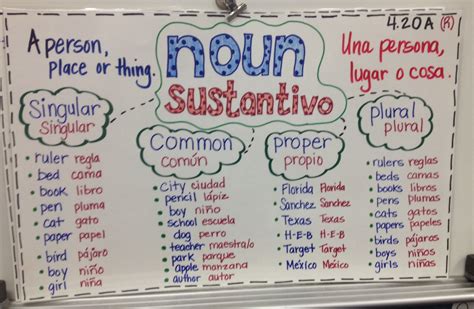 4.20A (R)
A person,
Place or thing.
noun
sustantivo
Una persona,
lugar o cosa.
Singular
Singular
• ruler regla
• bed cama
• book libro
• pen pluma
• cat gato
• paper papel
• bird pájaro
• boy niño
• girl niña
Common
común
• city ciudad
• pencil lápiz
• boy niño
• school escuela
• dog perro
• teacher maestra/o
• park parque
• apple manzana
• author autor
proper
propio
• Florida Florida
• Sánchez Sánchez
• Texas Texas
• H-E-B H-E-B
• Target Target
• México México
plural
plural
• rulers reglas
• beds camas
• books libros
• pens plumas
• cats gatos
• papers papeles
• birds pájaros
• boys niños
• girls niñas